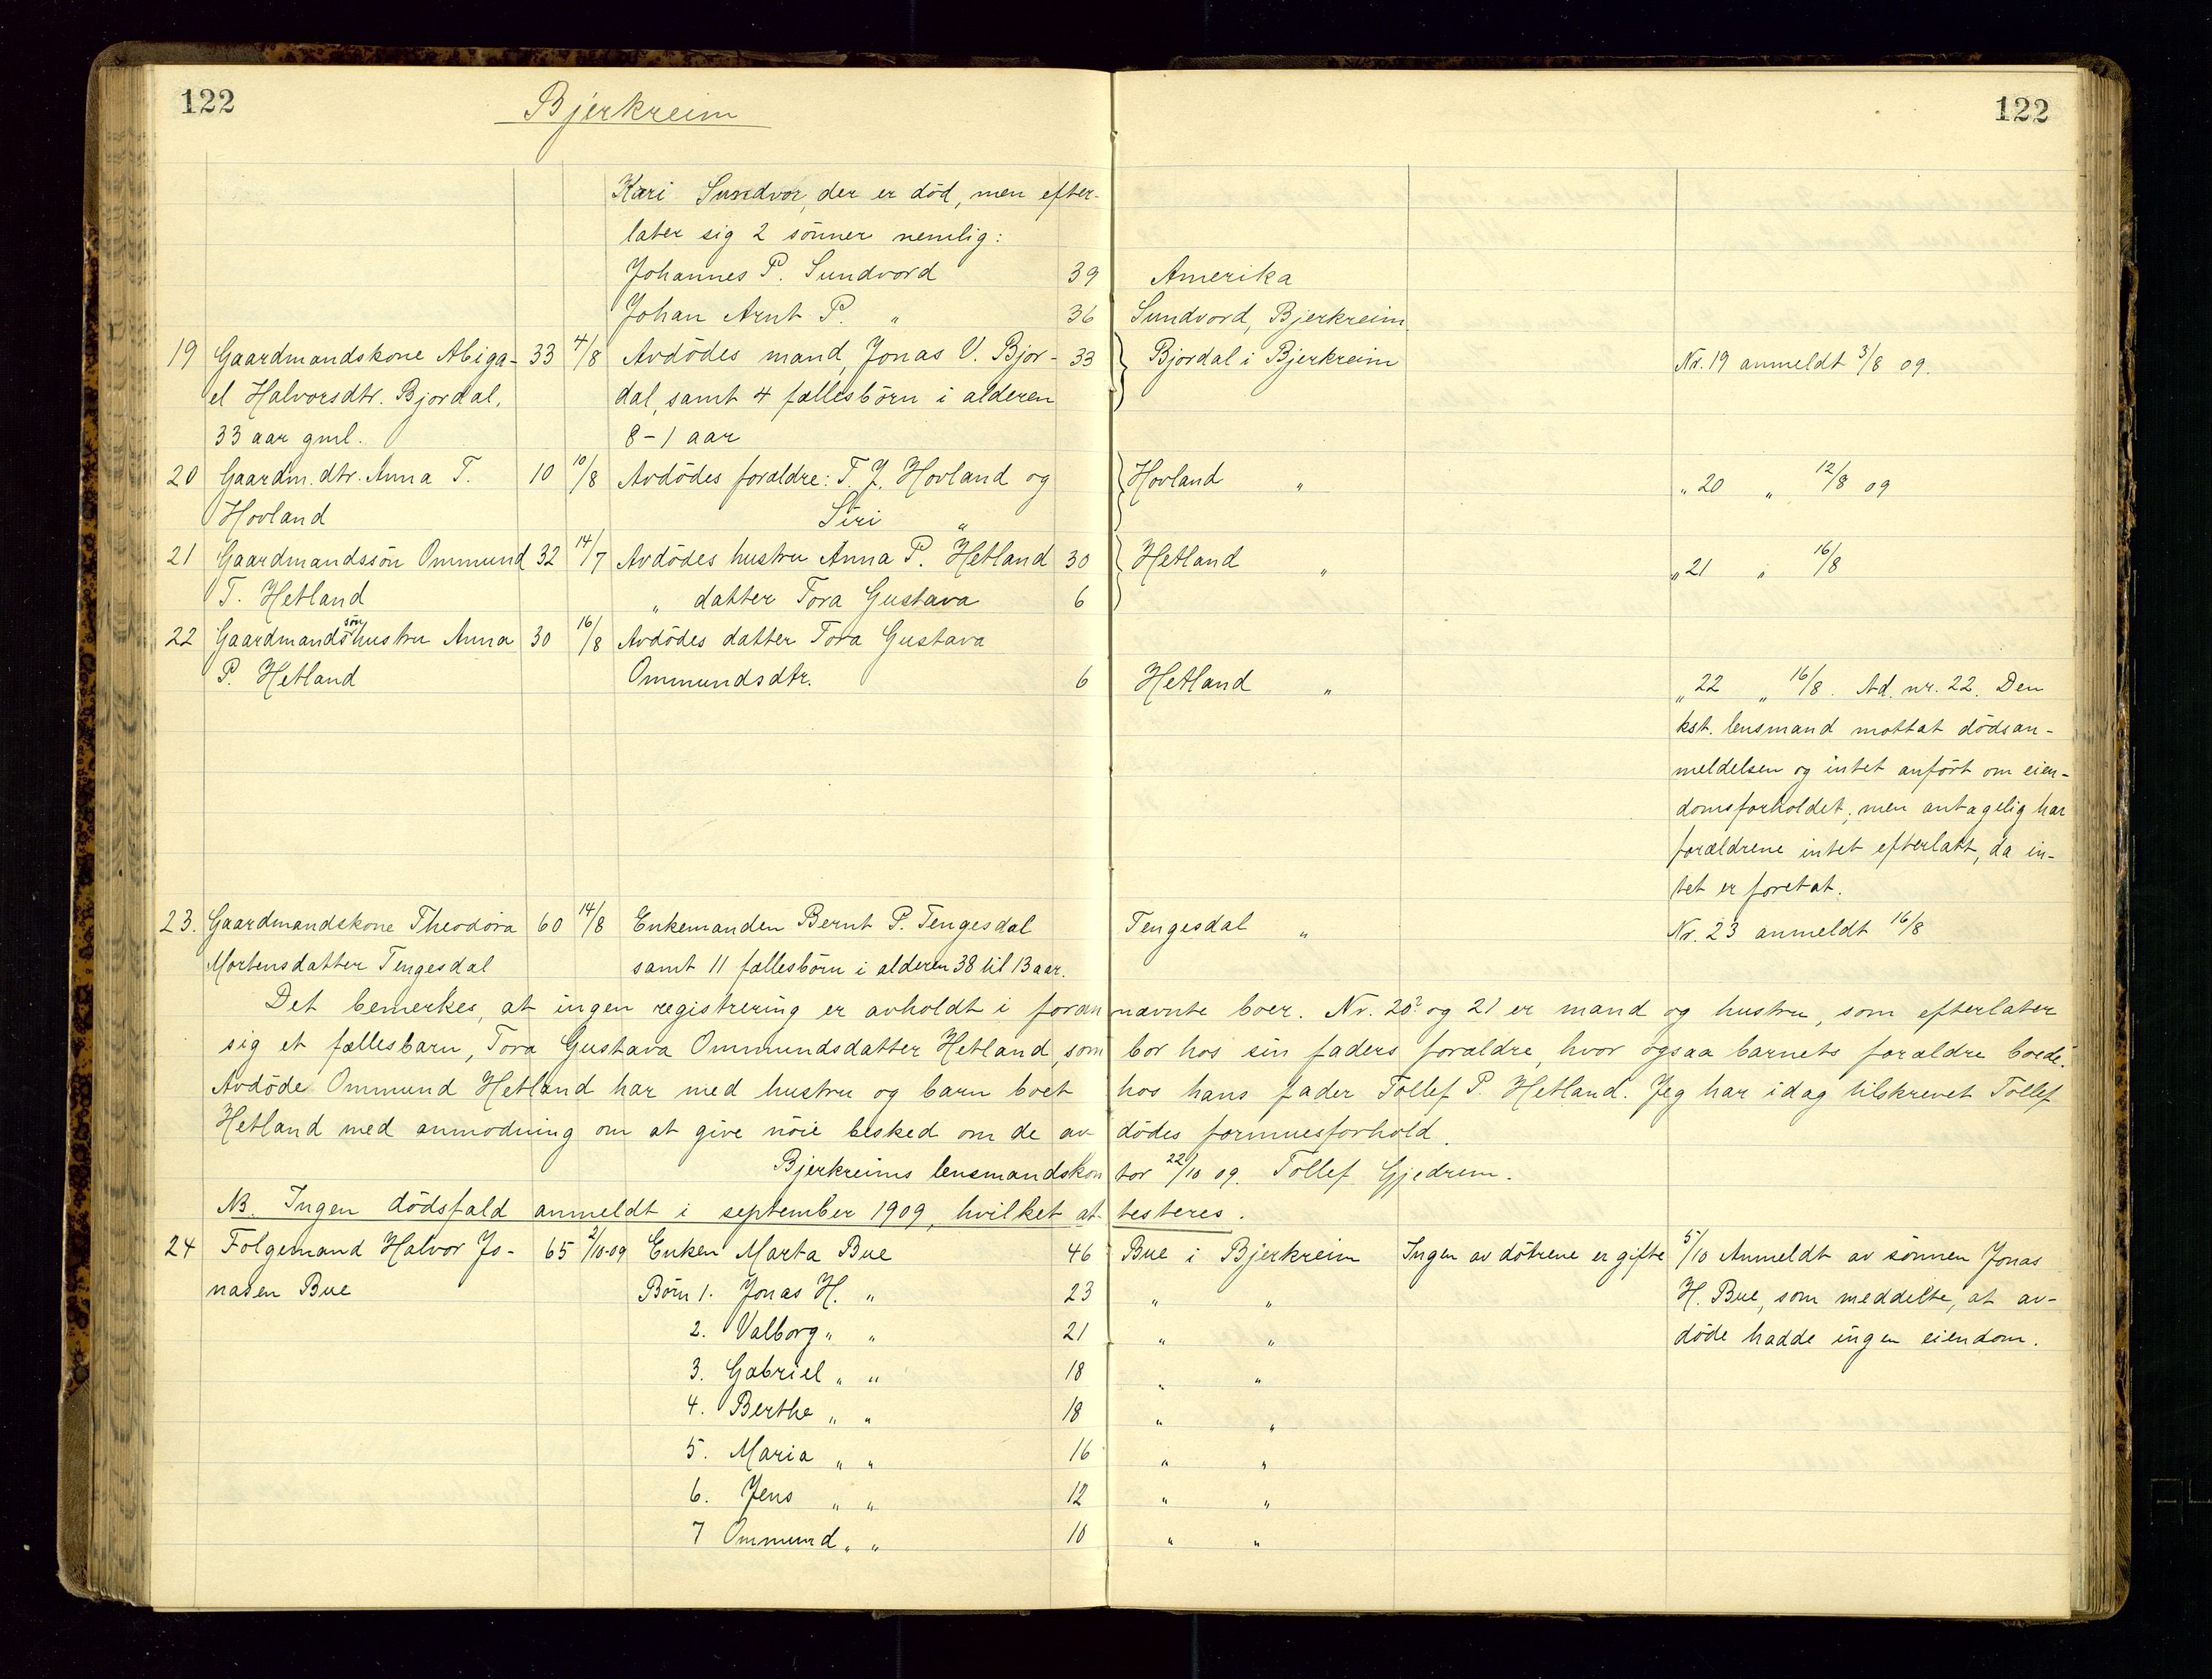 122 Bjerkreim 122
Kari Sundvor, der er död, men efter-
later sig 2 sönner nemlig:
Johannes P. Sundvord 39 Amerika
Johan Arnt P. " 36 Sundvord, Bjerkreim
19 Gaardmandskone Abiga- 33 4/8 Avdödes mand, Jonas V. Bjor- 33 Bjordal i Bjerkreim Nr. 19 anmeldt 3/8 09.
el Halvorsdtr. Bjordal, dal, samt 4 fællesbörn i alderen
33 aar gml. 8-1 aar
20 Gaardm. dtr. Anna T. 10 10/8 Avdödes forældre: T. J. Hovland og Hovland " " 20 " 12/8 09
Hovland Siri "
21 Gaardmandssön Ommund 32 14/7 Avdödes hustru Anna P. Hetland 30 Hetland " " 21 " 16/8
T. Hetland " datter Tora Gustava 6
22 Gaardmandssönhustru Anna 30 16/8 Avdödes datter Tora Gustava
P. Hetland Ommundsdtr. 6 Hetland " " 22 " 16/8. Ad. nr. 22. Den
kst. lensmand mottat dödsan-
meldelsen og intet anfört om eien-
domsforholdet, men antagelig har
forældrene intet efterlatt, da in-
tet er foretat.
23. Gaardmandskone Theodora 60 14/8 Enkemanden Bernt P. Tengesdal Tengesdal " Nr. 23 anmeldt 16/8
Mortensdatter Tengesdal samt 11 fællesbörn i alderen 38 til 13 aar.
Det bemerkes, at ingen registrering er avholdt i foran nævnte boer. Nr. 20? og 21 er mand og hustru, som efterlater
sig et fællesbarn, Tora Gustava Ommundsdatter Hetland, som bor hos sin faders forældre, hvor ogsaa barnets forældre boede.
Avdöde Ommund Hetland har med hustru og barn boet hos hans fader Tollef P. Hetland. Jeg har idag tilskrevet Tollef
Hetland med anmodning om at give nöie besked om de av- dödes formuesforhold.
Bjerkreims lensmandskon tor 22/10 09. Tollef Gjedrem.
NB. Ingen dödsfald anmeldt i september 1909, hvilket at- testeres.
24 Folgemand Halvor Jo- 65 2/10-09 Enken Marta Bue 46 Bue i Bjerkreim Ingen av dötrene er gifte 5/10 Anmeldt av sönnen Jonas
nasen Bue Börn 1. Jonas H. " 23 " " H. Bue, som meddelte, at av-
2. Valborg " " 21 " " döde hadde ingen eiendom.
3. Gabriel " " 18 " "
4. Berthe " " 18 " "
5. Maria " " 16 " "
6. Jens " " 12 " "
7 Ommund " " 10 " "